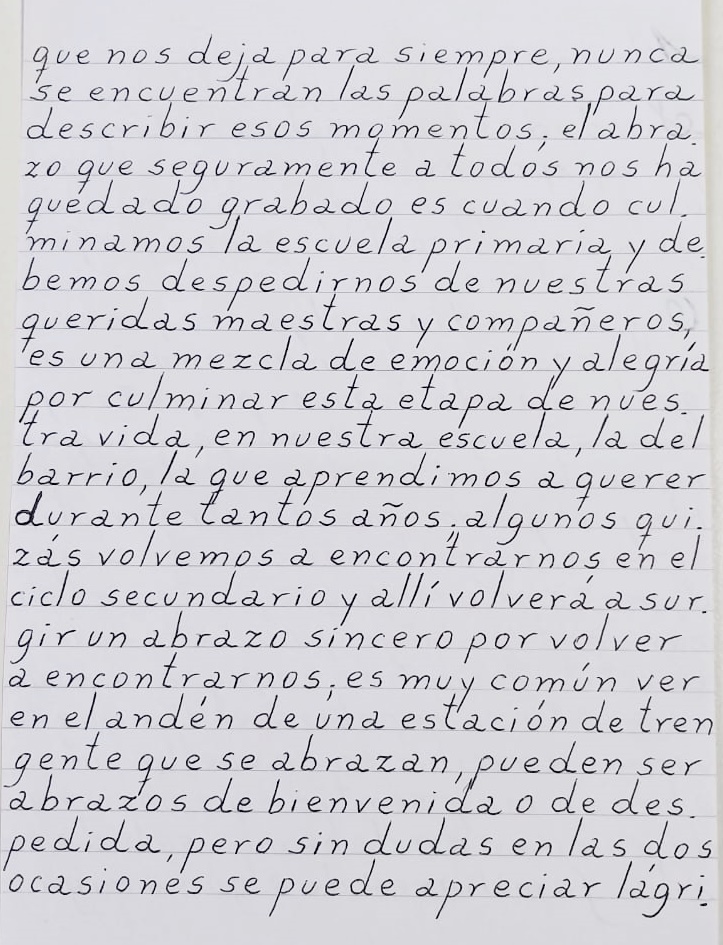 que nos deja para siempre, nunca
se encuentran las palabras para
describir esos momentos; el abra.
zo que seguramente a todos nos ha
quedado grabado es cuando cul.
minamos la escuela primaria y de.
bemos despedirnos de nuestras
queridas maestras y compañeros,
es una mezcla de emoción y alegría
por culminar esta etapa de nues.
tra vida, en nuestra escuela, la del
barrio, la que aprendimos a querer
durante tantos años; algunos qui.
zás volvemos a encontrarnos en el
ciclo secundario y allí volverá a sur.
gir un abrazo sincero por volver
a encontrarnos; es muy común ver
en el andén de una estación de tren
gente que se abrazan, pueden ser
abrazos de bienvenida o de des.
pedida, pero sin dudas en las dos
ocasiones se puede apreciar lágri.